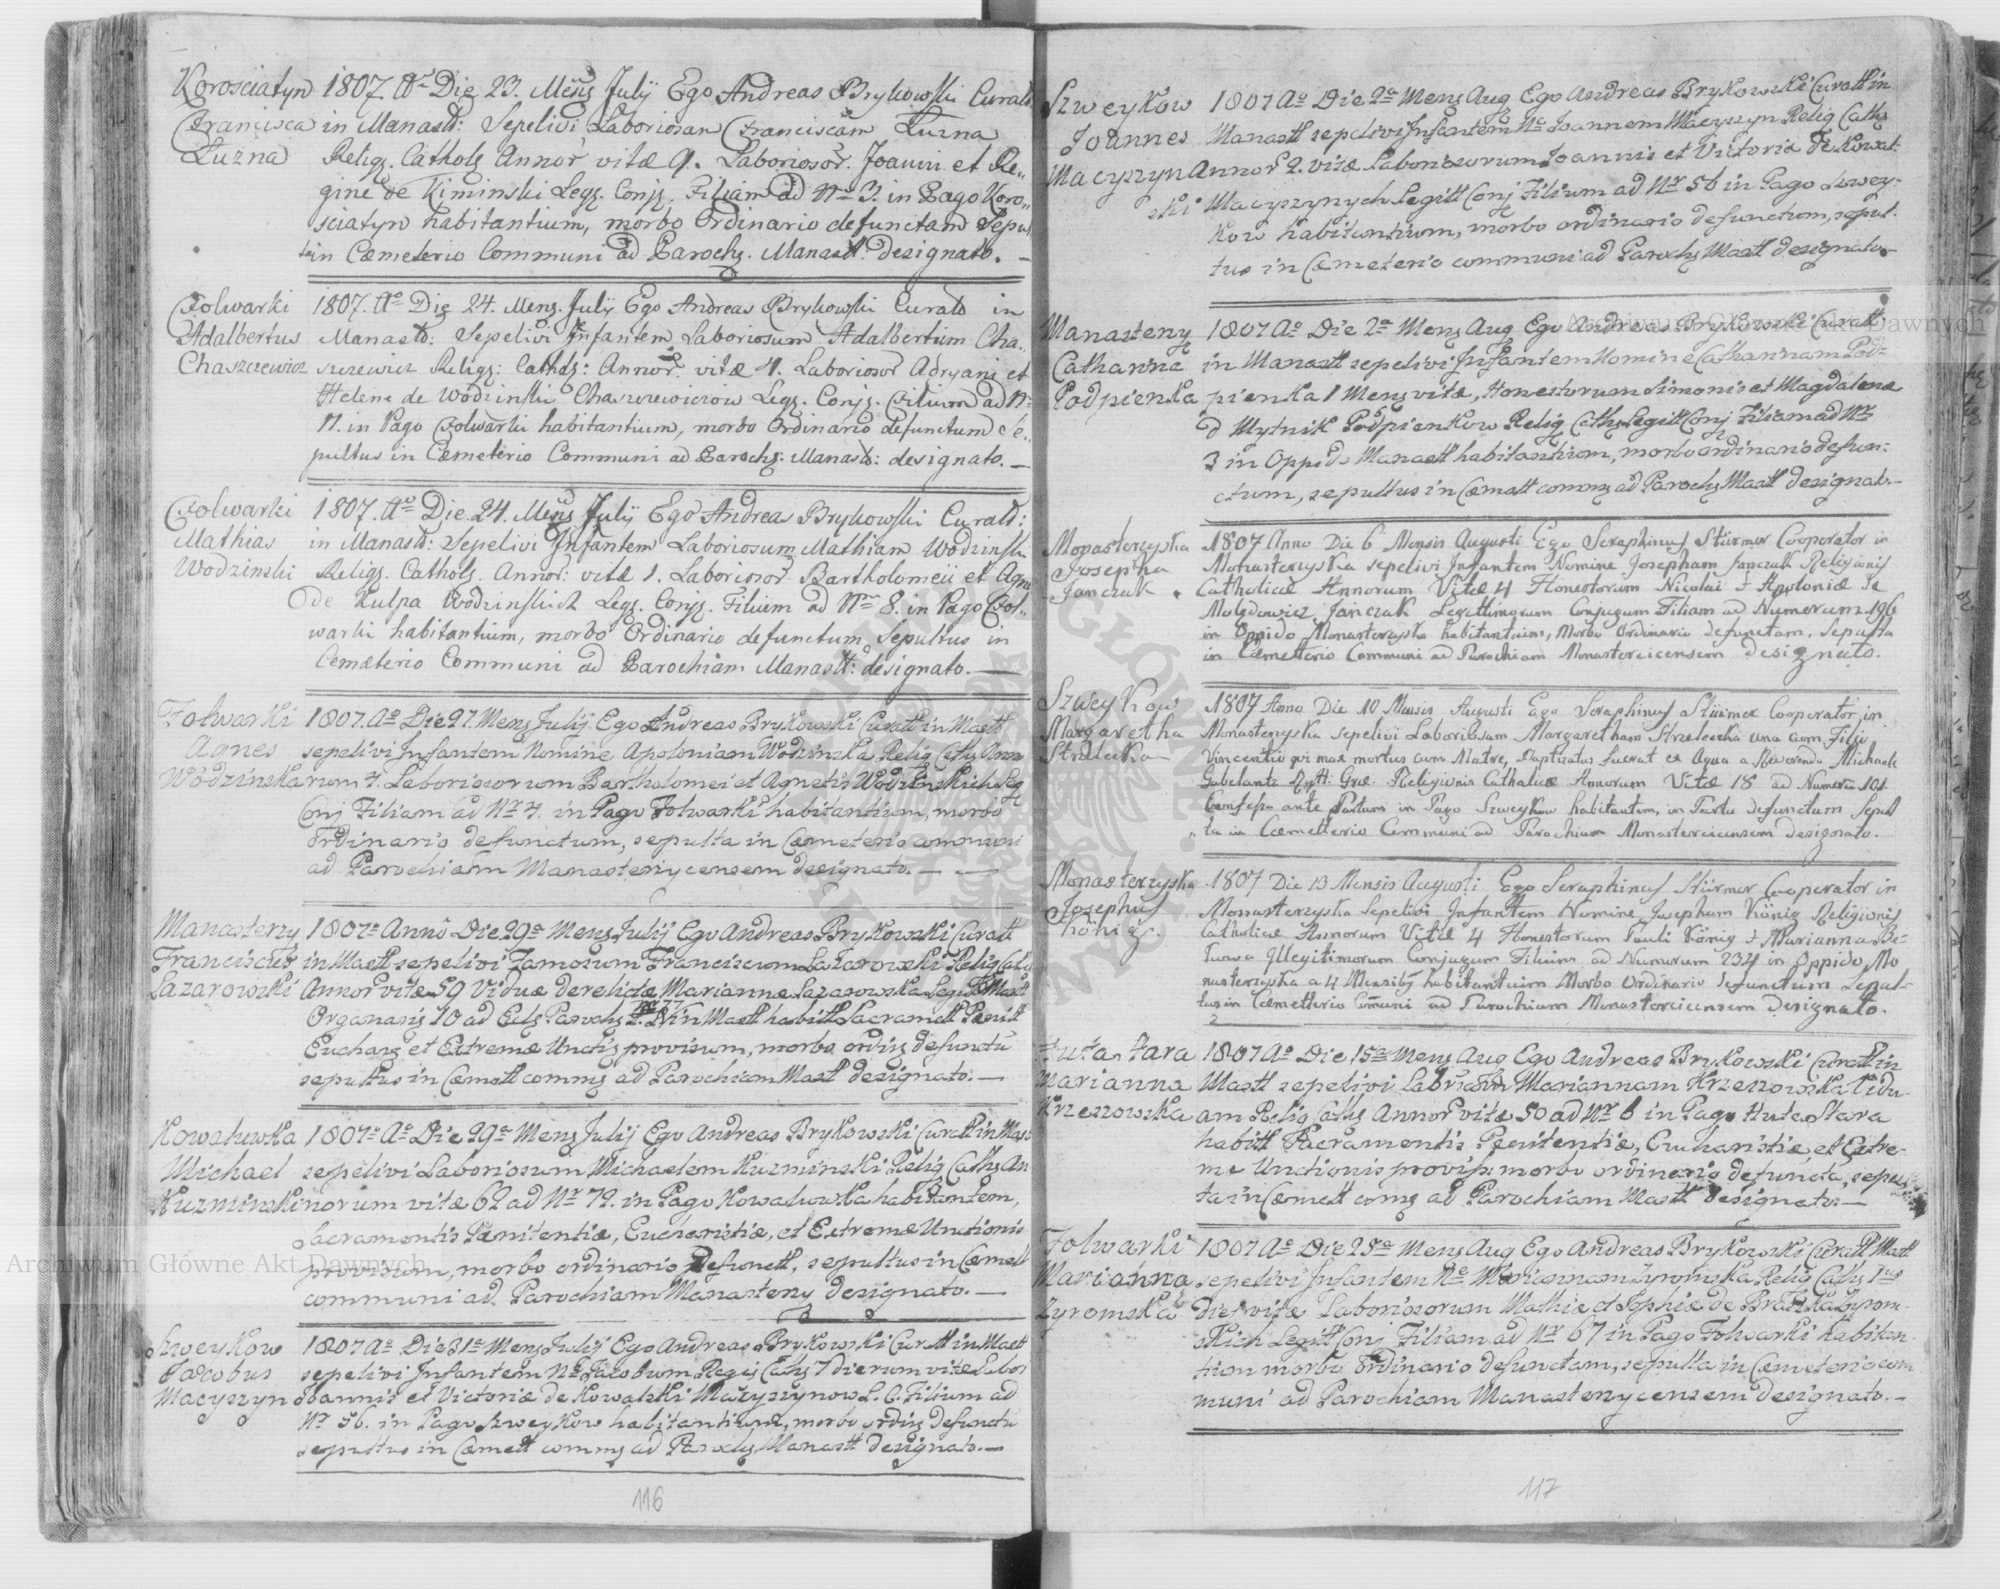 Korosciatyn 1807. Ao Die 23. Mens July Ego Andreas Brykowski Curats
Francisca in Manast: Sepelivi Laboriosam Franciscam Luzna
Luzna Religs. Cathols Annor vitæ 9. Laborioso͞r. Joanni et Re„
gine de Kiminski Legs. Conjs. Filiam ad Nro 3. in Pago Koro„
sciatyn habitantium, morbo Ordinario defunctam Sepul
in Cæmeterio Communi ad Parochs. Manast: designato. —
Folwarki 1807. Ao Die 24. Mens. July Ego Andreas Brykowski Curato in
Adalbertus Manast: Sepelivi Infantem Laboriosum Adalbertum Cha„
Chaszczewicz szczewicz Religs: Cathols: Annor. vitæ 4. Laboriosor Adryani et
Helene de Wodzinski Chaszczewiczow Legs. Conjs. Filium ad Nro
11. in Pago Folwarki habitantium, morbo Ordinario defunctum Se„
pultus in Cæmeterio Communi ad Parochs: Manast: designato. —
Folwarki 1807. Ao Die 24. Mens July Ego Andrea Brykowski Curats:
Mathias in Manast: Sepelivi Infantem Laboriosum Mathiam Wodzinski
Wodzinski Religs. Cathols. Annor: vitæ 1. Laboriosor Bartholomeii et Agne
de Kulpa Wodzinskich Legs. Conjs. Filium ad Nro 8. in Pago Fol„
warki habitantium, morbo Ordinario defunctum Sepultus in
Cemæterio Communi ad Parochiam Manast: designato. —
Folwarki 1807. Ao Die 27. Mens Julij Ego Andreas Brykowski Curatt in Mastt
Agnes sepelivi Infantem Nomine Apoloniam Wodzinska Relig Caths Anno
Wodzinska rum 7. Laboriosorum Bartholomei et Agnetis Wodzinskich Leg
Conj Filiam ad Nr 7. in Pago Folwarki habitantium, morbo
Ordinario defunctum, sepulta in Cæmeterio communi
ad Parochiam Manasterycensem designato. —
Manastery 1807o Anno Die 29a Mens Julij Ego Andreas Brykowski Curatt
Franciscus in Mastt sepelivi Famosum Franciscum Lazarowski Relig Caths
Lazarowski Annor vitæ 59 Viduæ derelictæ Mariannæ Lazarowska
Organaris ad Ecls Parochs in Mastt habitt Sacramett Penitt
Euchars et Extremæ Unctis provisum, morbo ordins defunctu
sepultus in Cæmett comms ad Parochiam Mastt designato. —
Kowalowka 1807o Ao Die 29a Mens Julij Ego Andreas Brykowski Curatt in Mast
Michael sepelivi Laboriosum Michaelem Kuzminski Relig Caths An
Kuzminski norum vitæ 62 ad Nr 72. in Pago Kowalowka habitantem,
Sacramentis Pænitentiæ, Eucharistiæ, et Extremæ Unctionis
provisum, morbo ordinario defunctt, sepultus in Cæmett
communi ad Parochiam Manastery designato. —
Szweykow 1807 Ao Die 31a Mens Julij Ego Andreas Brykowski Curatt in Mastt
Jacobus sepelivi Infantem Ne Jacobum Regis Caths 7 dierum vitæ Labor
Macyszyn Joannis et Victoriæ de Kowalski Macyszynow L. C. Filium ad
Nr 56. in Pago Szweykow habitantium, morbo ordins defunctu
sepultus in Cæmett comms ad Parochs Manastt designato. —
116
Szweykow 1807 Ao Die 2a Mens Aug Ego Andreas Brykowski Curatt in
Joannes Manastt sepelivi Infantem Ne Joannem Macyszyn Relig Caths
Macyszyn Annor 2. vitæ Laboriosorum Joannis et Victoria de Kowal:
ski Macyszynych Legitt Conj Filium ad Nr 56 in Pago Szwey:
kow habitantium, morbo ordinario defunctum, sepul:
tus in Cæmeterio communi ad Parochs Mastt designato. —
Manastery 1807 Ao Die 2a Mens Aug Ego Andreas Brykowski Curatt
Catharina in Manastt sepelivi Infantem Nomine Catharinam Pod=
Podpienka pienka 1 Mens vitæ, Honestorum Simonis et Magdalenæ
d Mytnik Podpienkow Relig Caths Legitt Conj Filiam ad Nr
3 in Oppido Manastt habitantium, morbo ordinario defun:
ctum, sepultus in Cæmett comms ad Parochs Mastt designato —
Monasterzyska 1807 Anno Die 6 Mensis Augusti Ego Seraphinus Stürmer Cooperator in
Josepha Monasterzyska sepelivi Infantem Nomine Josepham Janczuk Religionis
Janczuk Catholicæ Annorum Vitæ 4 Honestorum Nicolai & Apoloniæ de
Janczak Legittimorum Conjugum Filiam ad Numerum 196
in Oppido Monasterzyska habitantium, Morbo Ordinario defunctam, Sepulta
in Cæmetterio Communi ad Parochiam Monasterciensem designato.
Szweykow 1807 Anno Die 10 Mensis Augusti Ego Seraphinus Stürmer Cooperator in
Margaretha Monasterzyska sepelivi Laboriosam Margaretham Strzelecka una cum Filio
Strzelecka Vincentio qui mox mortus cum Matre, Baptizatus fuerat ex Aqua a Reverendo Michaele
Ritt: Græ. Religionis Catholicæ Annorum Vitæ 18 ad Numerum 101.
ante Partum in Pago Szweykow habitantem, in Partu defunctum Sepul
ta in Cæmetterio Communi ad Parochiam Monasterciensem designato.
Monasterzyska 1807 Die 13 Mensis Augusti Ego Seraphinus Stürmer Cooperator in
Josephus Monasterzyska Sepelivi Infantem Nomine Josephum König Religionis
König. Catholicæ Annorum Vitæ 4 Honestorum Pauli König & Marianna Bi-
Illegitimorum Conjugum Filium ad Numerum 234 in Oppido Mo
nasterzyska a 4 Mensibs habitantium Morbo Ordinario defunctum Sepul-
tus in Cæmetterio Comuni ad Parochiam Monasterciensem designato.
Huta Stara 1807 Ao Die 15a Mens Aug Ego Andreas Brykowski Curatt in
Marianna Mastt sepelivi Mariannam Krzeszowska Vidu-
Krzeszowska am Relig Caths Annor vitæ 50 ad Nr 6 in Pago Huta Stara
habitt Sacramentis Penitentiæ, Eucharistiæ, et Extre-
me Unctionis provis: morbo ordinario defuncta, sepul
ta in Cæmett comms ad Parochiam Mastt designato. —
Folwarki 1807 Ao Die 25a Mens Aug Ego Andreas Brykowski Curatt Mastt
Marianna sepelivi Infantem Ne Mariannam Zyromska Relig Caths 1us
Zyromska Diei vitæ Laboriosorum Mathiæ et Sophiæ de Bratska Zyrom-
skich Legitt Conj Filiam ad Nr 67 in Pago Folwarki habitan-
tium morbo Ordinario defunctam, sepulta in Cæmeterio com
muni ad Parochiam Manasterycensem designato. —
117
Archiwum Główne Akt Dawnych
Archiwum Główne Akt Dawnych